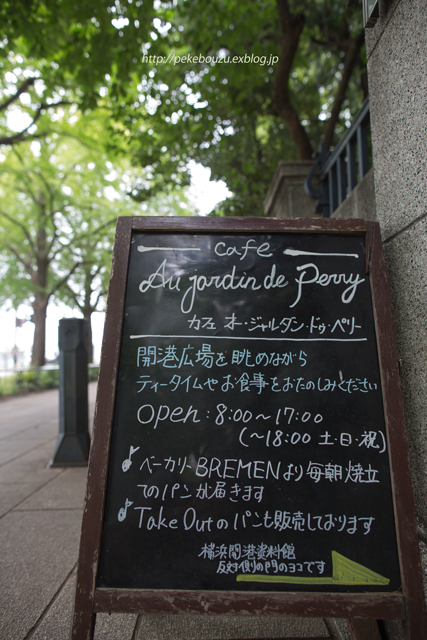 http://pekebouzu.exblog.jp
cafe
Au jardin de Perry
カフェ オ・ジャルダン・ドゥ・ペリー
開港広場を眺めながら
ティータイムやお食事をおたのしみください
open : 8:00〜17:00
(〜18:00 土・日・祝)
♪ ベーカリーBREMENより毎朝焼立
てのパンが届きます
♪ Take Outのパンも販売しております
横浜開港資料館
反対側の門のヨコです